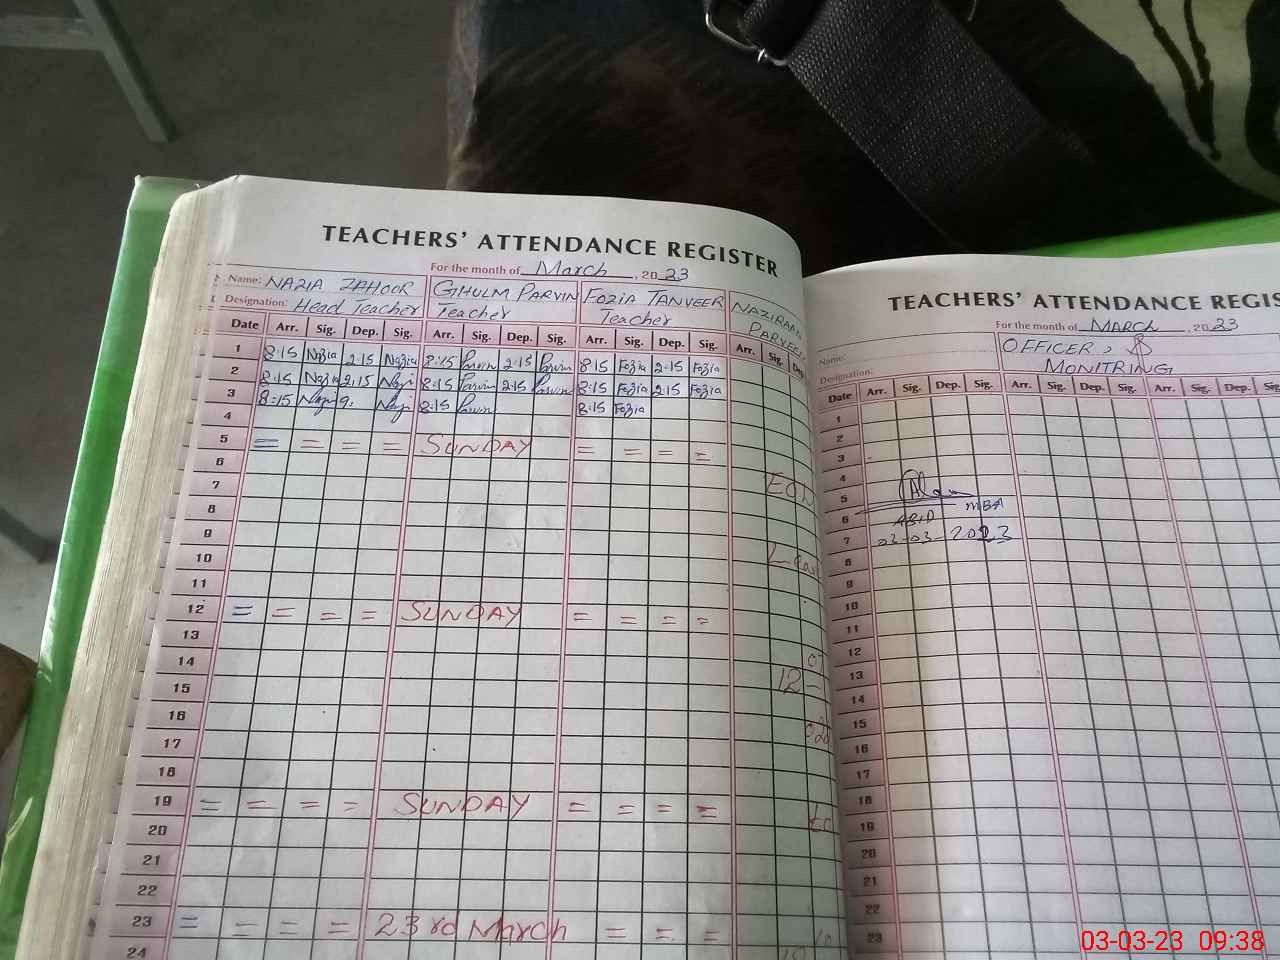 TEACHERS' ATTENDANCE REGISTER
For the month of March, 2023
Name: NAZIA ZAHOOR GHULM PARVIN FOZIA TANVEER NAZIRAAN
Designation: Head Teacher Teacher Teacher PARVEEN
Date Arr. Sig. Dep. Sig. Arr. Sig. Dep. Sig. Arr. Sig. Dep. Sig. Arr. Sig. Dep.
1 8:15 Nazia 2:15 Nazia 8:15 Parvin 2:15 Parvin 8:15 Fozia 2:15 Fozia
2 8:15 Nazia 2:15 Nazi 8:15 Parvin 2:15 Parvin 8:15 Fozia 2:15 Fozia
3 8:15 Nazi 9: Nazi 8:15 Parvin 8:15 Fozia
4
5 = = = = SUNDAY = = = =
6
7
8
9
10
11
12 = = = = SUNDAY = = = =
13
14
15 12 -
16
17
18
19 = = = = SUNDAY = = = =
20
21
22
23 = = = = 23rd March = = = =
24
TEACHERS' ATTENDANCE REGIS
For the month of MARCH, 2023
Name: OFFICER,S
Designation: MONITRING
Date Arr. Sig. Dep. Sig. Arr. Sig. Dep. Sig. Arr. Sig.
1
2
3
4
5
6 ABID MBA
7 03-03-2023
8
9
10
11
12
13
14
15
16
17
18
19
20
21
22
23
03-03-23 09:38